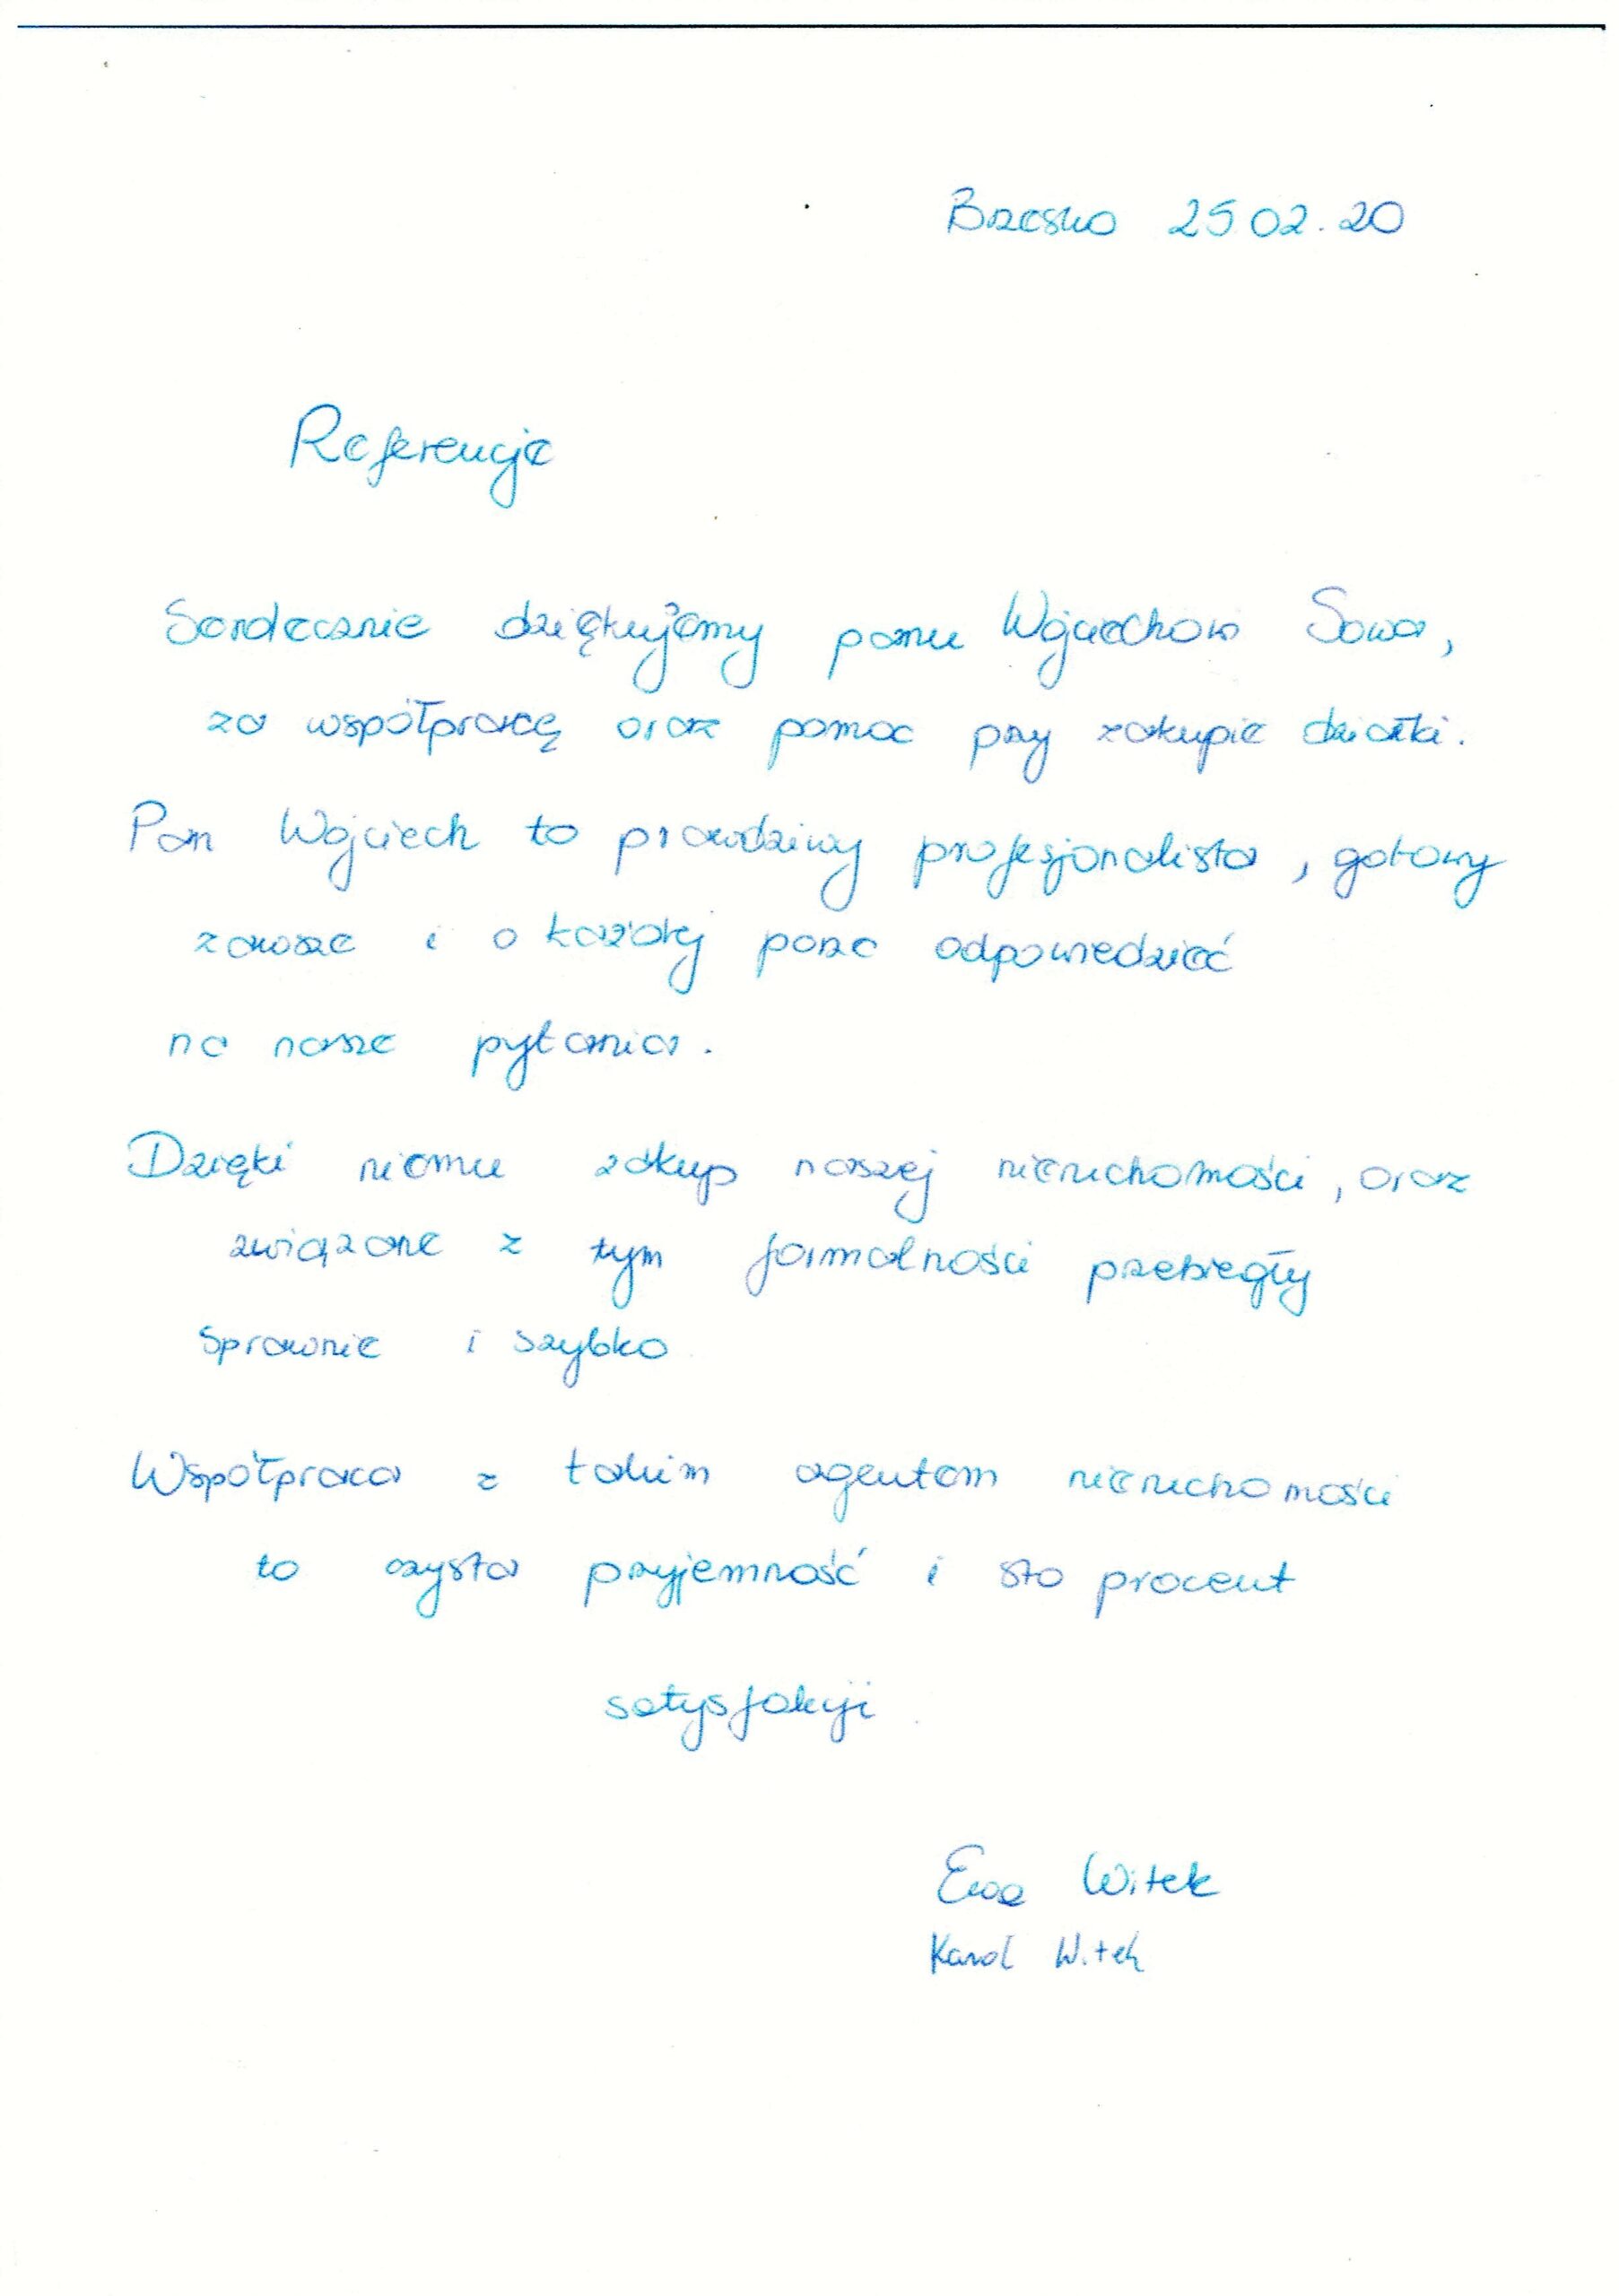 Brzesko 25 02.20
Referencje
Serdecznie dziękujemy panu Wojciechowi Sowa,
za współpracę oraz pomoc przy zakupie działki.
Pan Wojciech to prawdziwy profesjonalista, gotowy
zawsze i o każdej porze odpowiedzieć
na nasze pytania.
Dzięki niemu zakup naszej nieruchomości, oraz
związane z tym formalności przebiegły
sprawnie i szybko
Współpraca z takim agentem nieruchomości
to czysta przyjemność i sto procent
satysfakcji
Ewa Witek
Karol Witek